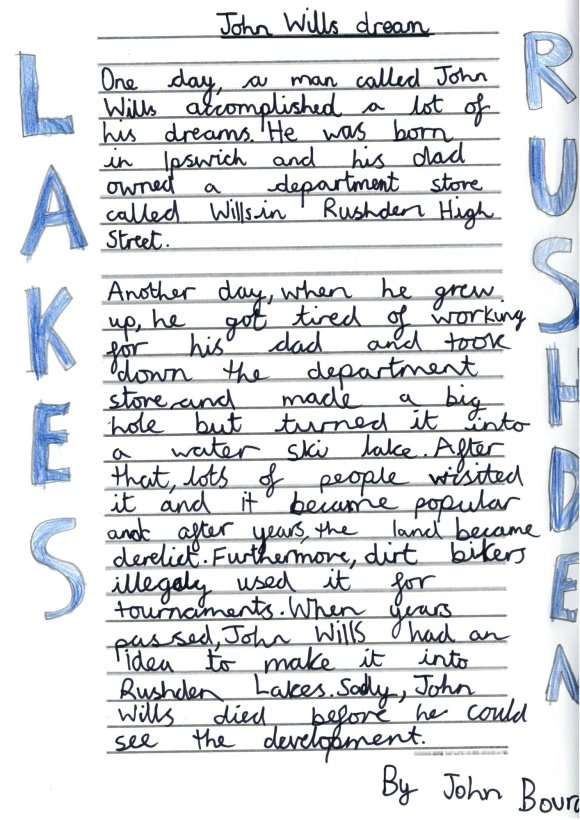 John Wills dream
LAKES
One day, a man called John
Wills accomplished a lot of
his dreams. He was born
in Ipswich and his dad
owned a department store
called Wills in Rushden High
Street.
Another day, when he grew
up, he got tired of working
for his dad and took
down the department
store and made a big
hole but turned it into
a water ski lake. After
that, lots of people visited
it and it became popular
and after years, the land became
derelict. Furthermore, dirt bikers
illegaly used it for
tournaments. When years
passed, John Wills had an
idea to make it into
Rushden Lakes. Sadly, John
Wills died before he could
see the development.
By John
RUSHDEN